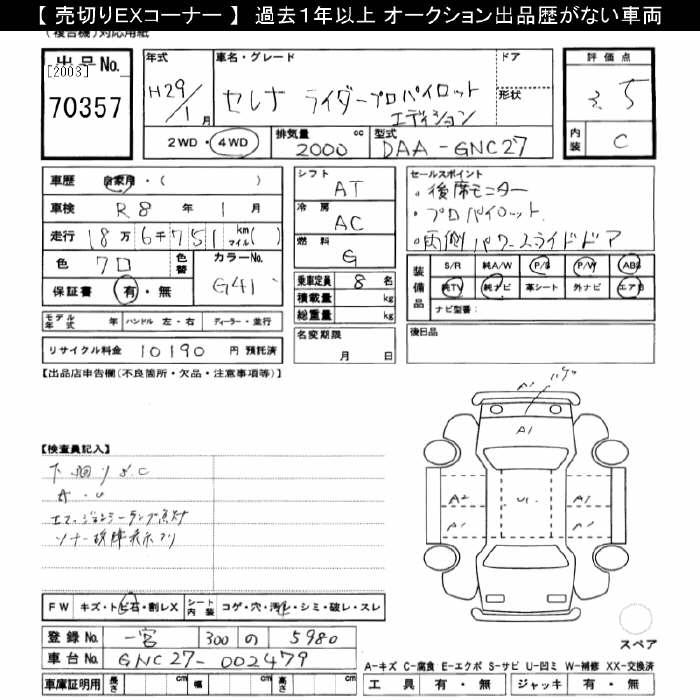 【 売切りEXコーナー 】 過去１年以上 オークション出品歴がない車両
(複合機)対応用紙
出品No.
[2003]
70357
年式
H29/1月
車名・グレード
セレナ ライダープロパイロット
エディション
ドア
形状
評価点
3.5
内装
C
2WD・4WD
排気量
2000 cc
型式
DAA-GNC27
車歴 自家用・( )
車検 R8年 1月
走行 18万6千751 km マイル( )
色 クロ
色替
カラーNo.
G41
保証書 有・無
シフト
AT
冷房
AC
燃料
G
乗車定員 8名
積載量 kg
総重量 kg
名変期限
月 日
セールスポイント
・後席モニター
・プロパイロット
・両側パワースライドドア
装備品
S/R 純A/W P/S P/W ABS
純TV 純ナビ 革シート 外ナビ エアB
ナビ型番:
モデル年式 年 ハンドル 左・右 ディーラー・並行
後日品
リサイクル料金 10190 円 預託済
【出品店申告欄(不良箇所・欠品・注意事項等)】
A1
【検査員記入】
下回りS.C
A.U
エマージョンシーランプ点灯
ソナー故障表示アリ
A2 A1
A1 A1
FW キズ・トビ石・割レX
シート内装 コゲ・穴・汚レ・シミ・破レ・スレ
登録No. 一宮 300 の 5980
車台No. GNC27-002479
車庫証明用 長さ cm 幅 cm 高さ cm
スペア
A-キズ C-腐食 E-エクボ S-サビ U-凹ミ W-補修 XX-交換済
工具 有・無 ジャッキ 有・無